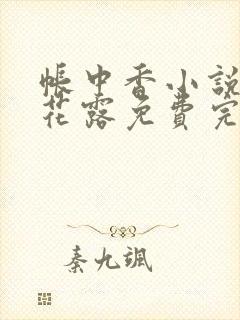 帳中香小說
花露免費完
秦九颯